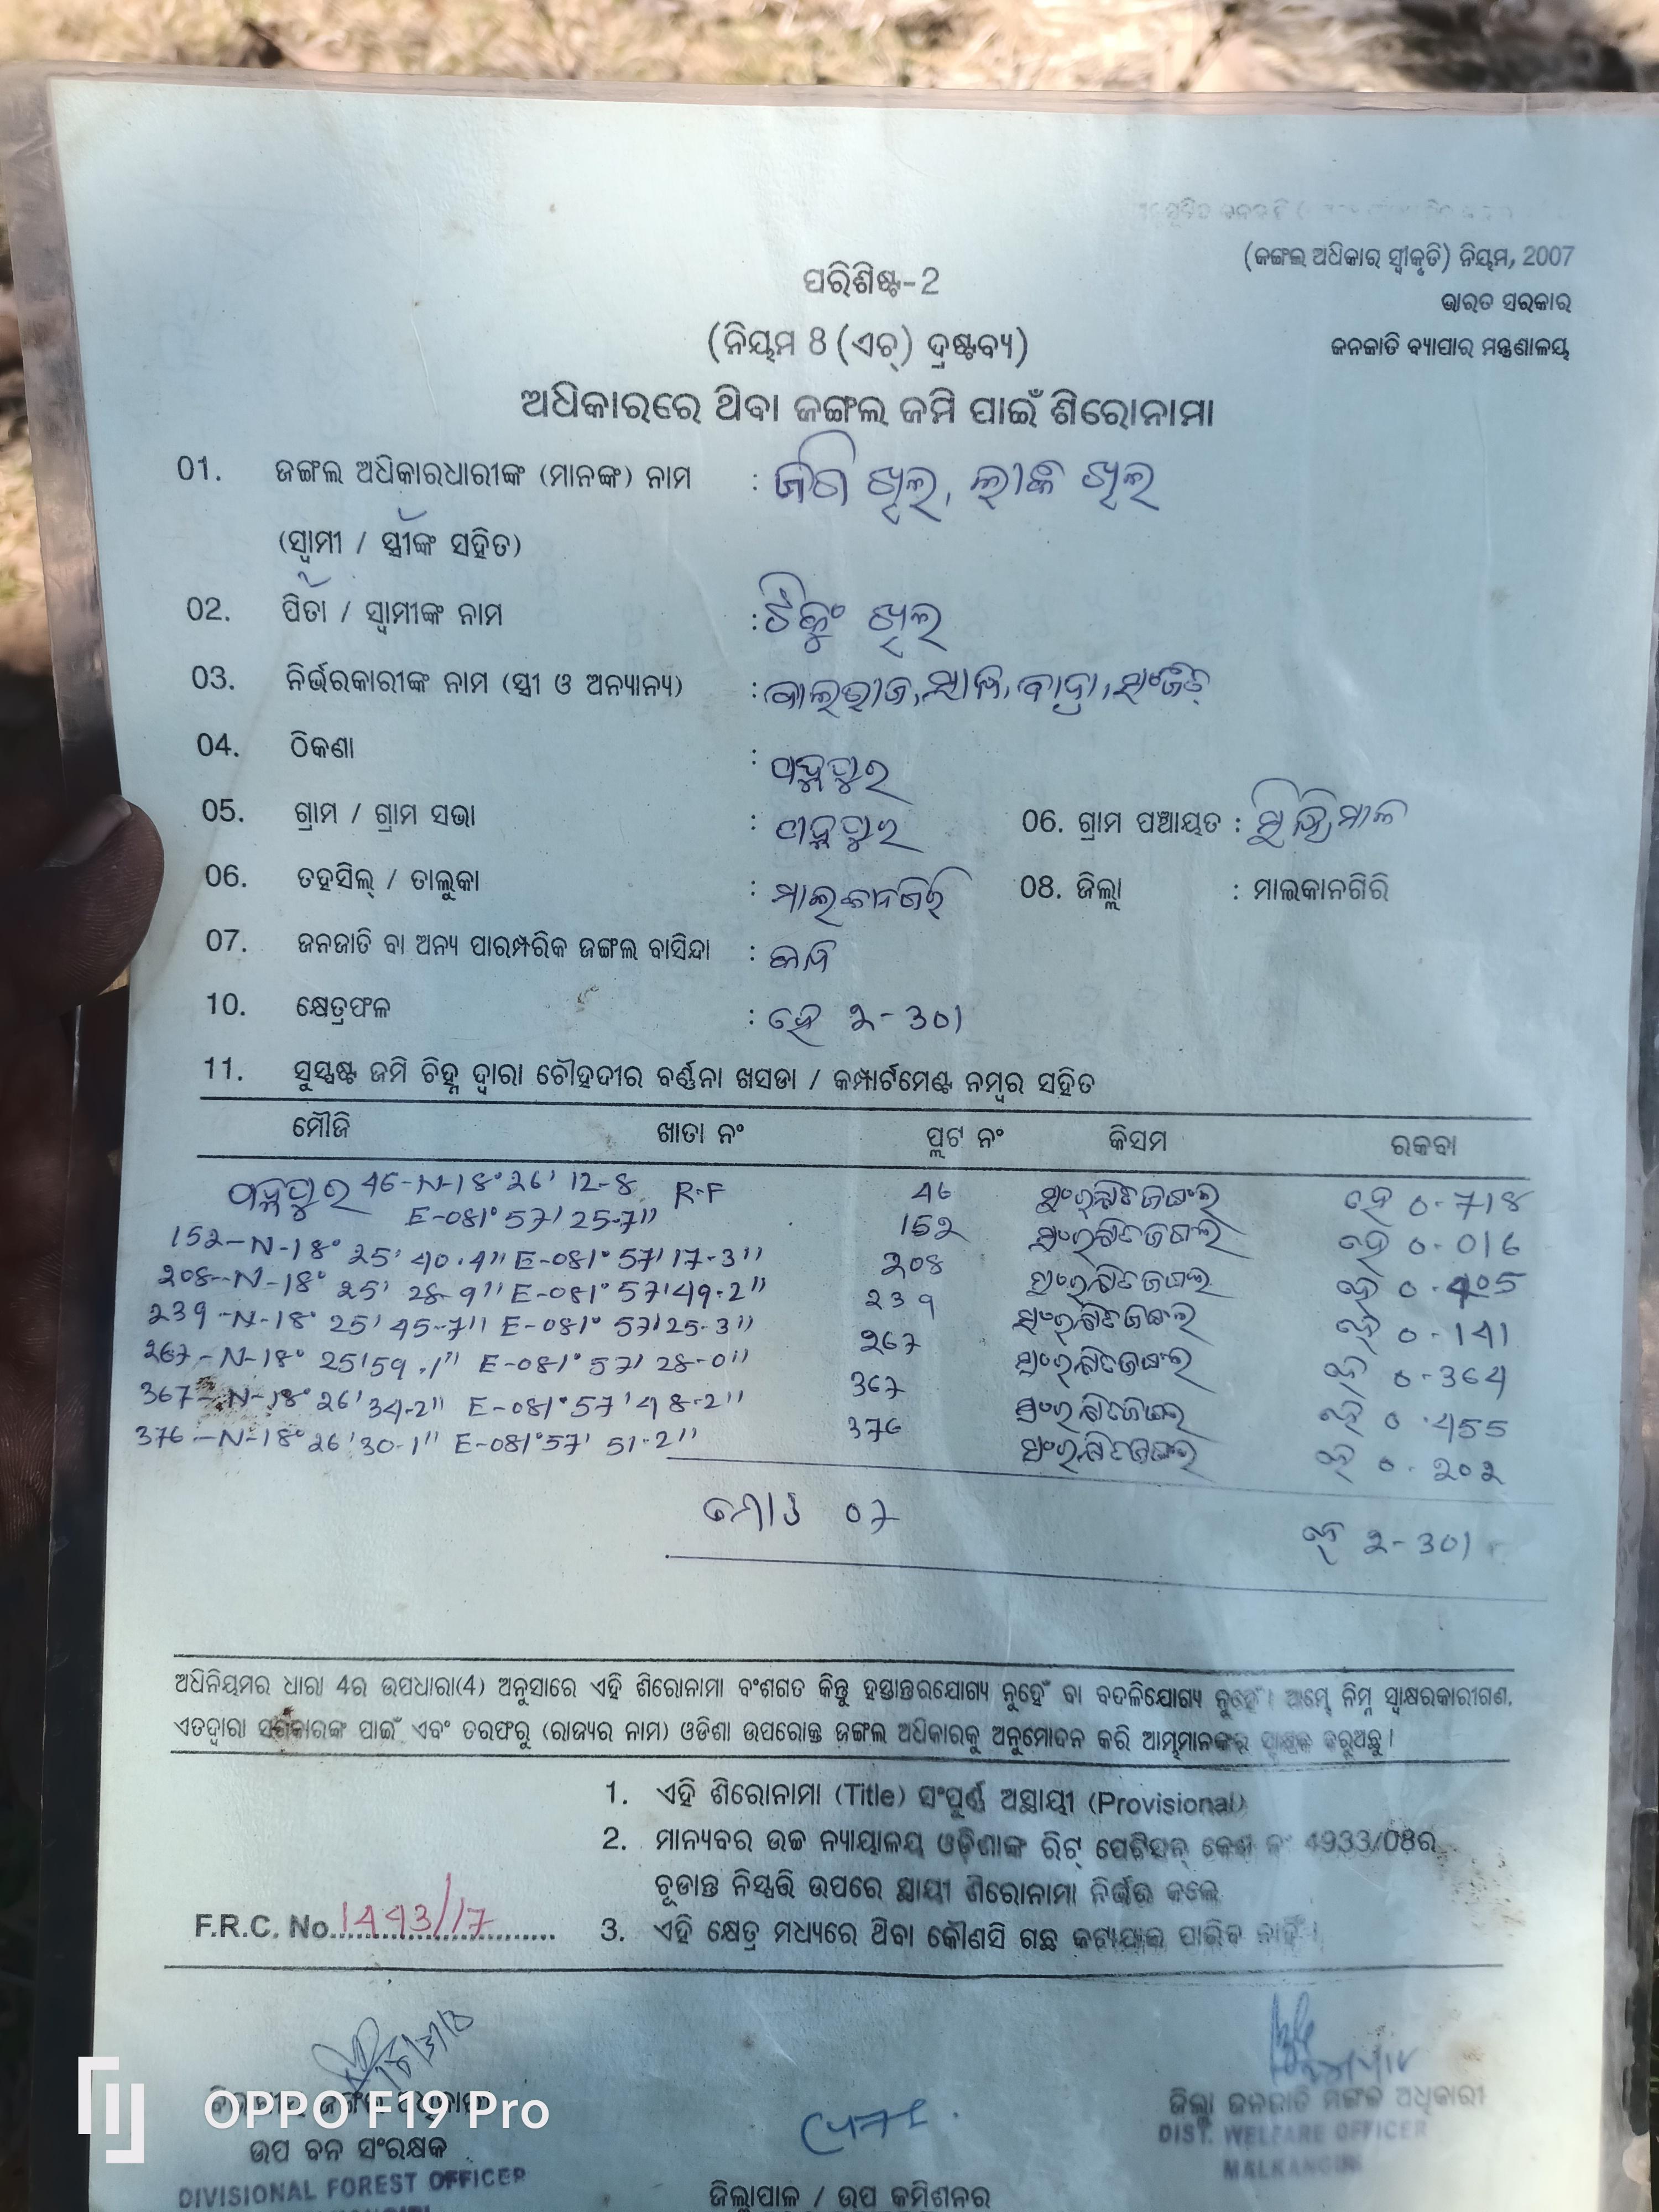 (ଜଙ୍ଗଲ ଅଧିକାର ସ୍ୱୀକୃତି) ନିୟମ, 2007
ପରିଶିଷ୍ଟ-2
ଭାରତ ସରକାର
(ନିୟମ 8 (ଏଚ୍) ଦ୍ରଷ୍ଟବ୍ୟ)
ଜନଜାତି ବ୍ୟାପାର ମନ୍ତ୍ରଣାଳୟ
ଅଧିକାରରେ ଥିବା ଜଙ୍ଗଲ ଜମି ପାଇଁ ଶିରୋନାମା
01. ଜଙ୍ଗଲ ଅଧିକାରଧାରୀଙ୍କ (ମାନଙ୍କ) ନାମ : ଜଗି ଖିଲ,
(ସ୍ୱାମୀ / ସ୍ତ୍ରୀଙ୍କ ସହିତ)
02. ପିତା / ସ୍ୱାମୀଙ୍କ ନାମ : ଖିଲ
03. ନିର୍ଭରକାରୀଙ୍କ ନାମ (ସ୍ତ୍ରୀ ଓ ଅନ୍ୟାନ୍ୟ) :
04. ଠିକଣା : ପଦ୍ମପୁର
05. ଗ୍ରାମ / ଗ୍ରାମ ସଭା : ପଦ୍ମପୁର 06. ଗ୍ରାମ ପଞ୍ଚାୟତ :
06. ତହସିଲ୍ / ତାଲୁକା : ମାଲକାନଗିରି 08. ଜିଲ୍ଲା : ମାଲକାନଗିରି
07. ଜନଜାତି ବା ଅନ୍ୟ ପାରମ୍ପରିକ ଜଙ୍ଗଲ ବାସିନ୍ଦା :
10. କ୍ଷେତ୍ରଫଳ : ହେ ୨-301
11. ସୁସ୍ପଷ୍ଟ ଜମି ଚିହ୍ନ ଦ୍ୱାରା ଚୌହଦୀର ବର୍ଣ୍ଣନା ଖସଡା / କମ୍ପାର୍ଟମେଣ୍ଟ ନମ୍ବର ସହିତ
ମୌଜି ଖାତା ନଂ ପ୍ଲଟ ନଂ କିସମ ରକବା
ପଦ୍ମପୁର 46-N-18° 26' 12-8 R.F 46 ସଂରକ୍ଷିତ ଜଙ୍ଗଲ ହେ 0-718
E-081° 57' 25-7"
152-N-18° 25' 40.4" E-081° 57' 17-3" 152 ସଂରକ୍ଷିତ ଜଙ୍ଗଲ ହେ 0-016
208-N-18° 25' 28-9" E-081° 57' 49-2" 208 ସଂରକ୍ଷିତ ଜଙ୍ଗଲ ହେ 0-405
239-N-18° 25' 45-7" E-081° 57' 25-3" 239 ସଂରକ୍ଷିତ ଜଙ୍ଗଲ ହେ 0-141
267-N-18° 25' 59.1" E-081° 57' 28-0" 267 ସଂରକ୍ଷିତ ଜଙ୍ଗଲ ହେ 0-364
367-N-18° 26' 34-2" E-081° 57' 48-2" 367 ସଂରକ୍ଷିତ ଜଙ୍ଗଲ ହେ 0.455
376-N-18° 26' 30-1" E-081° 57' 51-2" 376 ସଂରକ୍ଷିତ ଜଙ୍ଗଲ ହେ 0.202
ମୋଟ 07 ହେ ୨-301
ଅଧିନିୟମର ଧାରା 4ର ଉପଧାରା(4) ଅନୁସାରେ ଏହି ଶିରୋନାମା ବଂଶଗତ କିନ୍ତୁ ହସ୍ତାନ୍ତରଯୋଗ୍ୟ ନୁହେଁ ବା ବଦଳିଯୋଗ୍ୟ ନୁହେଁ । ଆମ୍ଭେ ନିମ୍ନ ସ୍ୱାକ୍ଷରକାରୀଗଣ,
ଏତଦ୍ୱାରା ସରକାରଙ୍କ ପାଇଁ ଏବଂ ତରଫରୁ (ରାଜ୍ୟର ନାମ) ଓଡିଶା ଉପରୋକ୍ତ ଜଙ୍ଗଲ ଅଧିକାରକୁ ଅନୁମୋଦନ କରି ଆମ୍ଭମାନଙ୍କର ସ୍ୱାକ୍ଷର କରୁଅଛୁ ।
1. ଏହି ଶିରୋନାମା (Title) ସଂପୂର୍ଣ୍ଣ ଅସ୍ଥାୟୀ (Provisional)
2. ମାନ୍ୟବର ଉଚ୍ଚ ନ୍ୟାୟାଳୟ ଓଡ଼ିଶାଙ୍କ ରିଟ୍ ପେଟିସନ୍ କେଶ ନଂ 4933/08ର
ଚୂଡାନ୍ତ ନିସ୍ପତ୍ତି ଉପରେ ସ୍ଥାୟୀ ଶିରୋନାମା ନିର୍ଭର କଲେ
F.R.C. No. 1443/17 3. ଏହି କ୍ଷେତ୍ର ମଧ୍ୟରେ ଥିବା କୌଣସି ଗଛ କଟାଯାଇ ପାରିବ ନାହିଁ ।
ଉପ ବନ ସଂରକ୍ଷକ
DIVISIONAL FOREST OFFICER
ଜିଲ୍ଲା ଜନଜାତି ମଙ୍ଗଳ ଅଧିକାରୀ
DIST. WELFARE OFFICER
MALKANGIRI
ଜିଲ୍ଲାପାଳ / ଉପ କମିଶନର
OPPO F19 Pro